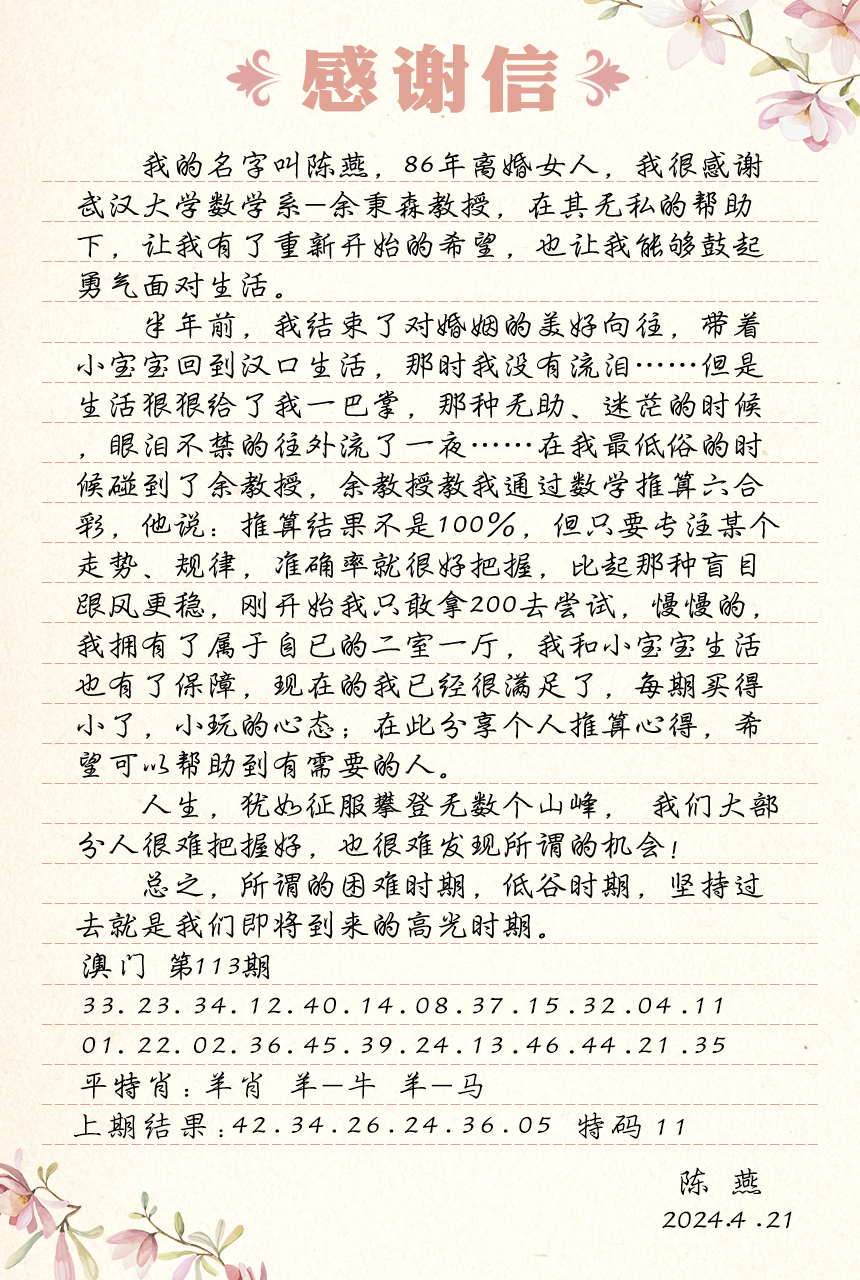 感谢信
我的名字叫陈燕，86年离婚女人，我很感谢
武汉大学数学系—余秉森教授，在其无私的帮助
下，让我有了重新开始的希望，也让我能够鼓起
勇气面对生活。
半年前，我结束了对婚姻的美好向往，带着
小宝宝回到汉口生活，那时我没有流泪……但是
生活狠狠给了我一巴掌，那种无助、迷茫的时候
，眼泪不禁的往外流了一夜……在我最低俗的时
候碰到了余教授，余教授教我通过数学推算六合
彩，他说：推算结果不是100%，但只要专注某个
走势、规律，准确率就很好把握，比起那种盲目
跟风更稳，刚开始我只敢拿200去尝试，慢慢的，
我拥有了属于自已的二室一厅，我和小宝宝生活
也有了保障，现在的我已经很满足了，每期买得
小了，小玩的心态；在此分享个人推算心得，希
望可以帮助到有需要的人。
人生，犹如征服攀登无数个山峰， 我们大部
分人很难把握好，也很难发现所谓的机会！
总之，所谓的困难时期，低谷时期，坚持过
去就是我们即将到来的高光时期。
澳门 第113期
33.23.34.12.40.14.08.37.15.32.04.11
01.22.02.36.45.39.24.13.46.44.21.35
平特肖：羊肖 羊—牛 羊—马
上期结果：42.34.26.24.36.05 特码 11
陈 燕
2024.4.21